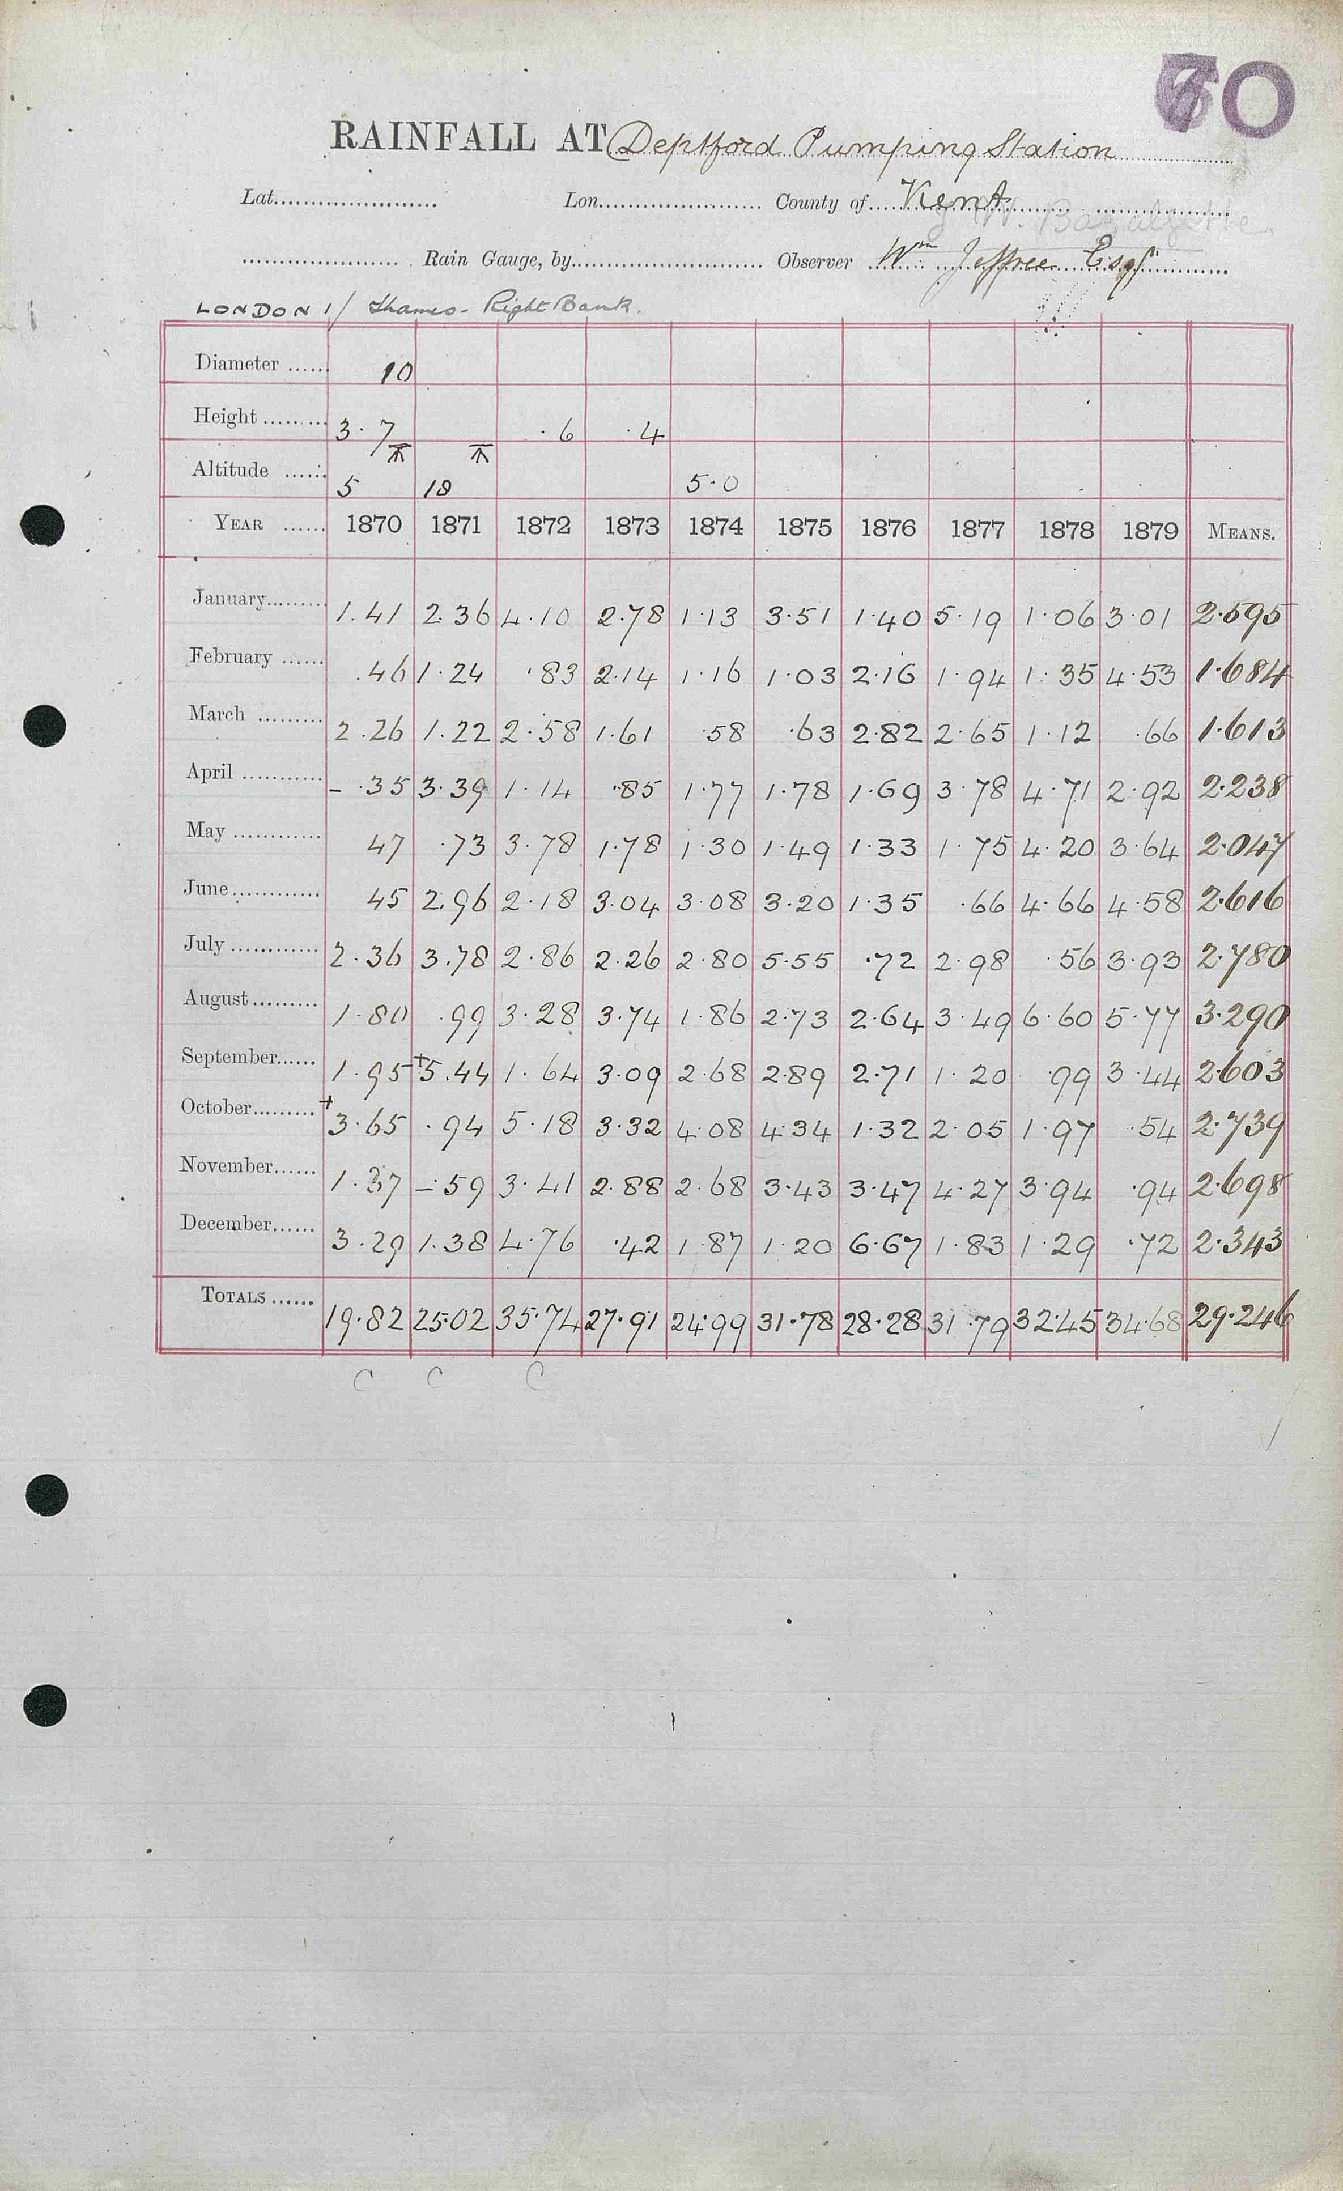 70
RAINFALL AT Deptford Pumping Station
Lat. Lon. County of Kent
J W. Bazalgette
Rain Gauge, by Observer Wm Jeffree Esqr
LONDON 1/ Thames - Right Bank.
Diameter 10
Height 3.7 .6 .4
Altitude 5 18 5.0
YEAR 1870 1871 1872 1873 1874 1875 1876 1877 1878 1879 MEANS.
January 1.41 2.36 4.10 2.78 1.13 3.51 1.40 5.19 1.06 3.01 2.595
February .46 1.24 .83 2.14 1.16 1.03 2.16 1.94 1.35 4.53 1.684
March 2.26 1.22 2.58 1.61 .58 .63 2.82 2.65 1.12 .66 1.613
April - .35 3.39 1.14 .85 1.77 1.78 1.69 3.78 4.71 2.92 2.238
May 47 .73 3.78 1.78 1.30 1.49 1.33 1.75 4.20 3.64 2.047
June 45 2.96 2.18 3.04 3.08 3.20 1.35 .66 4.66 4.58 2.616
July 2.36 3.78 2.86 2.26 2.80 5.55 .72 2.98 .56 3.93 2.780
August 1.80 .99 3.28 3.74 1.86 2.73 2.64 3.49 6.60 5.77 3.290
September 1.95 +5.44 1.64 3.09 2.68 2.89 2.71 1.20 .99 3.44 2.603
October +3.65 .94 5.18 3.32 4.08 4.34 1.32 2.05 1.97 .54 2.739
November 1.37 -.59 3.41 2.88 2.68 3.43 3.47 4.27 3.94 .94 2.698
December 3.29 1.38 4.76 .42 1.87 1.20 6.67 1.83 1.29 .72 2.343
TOTALS 19.82 25.02 35.74 27.91 24.99 31.78 28.28 31.79 32.45 34.68 29.246
C C C